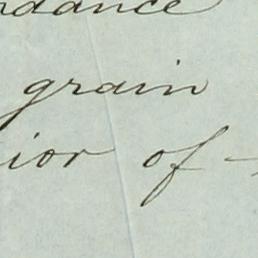 ndance
grain
ior of